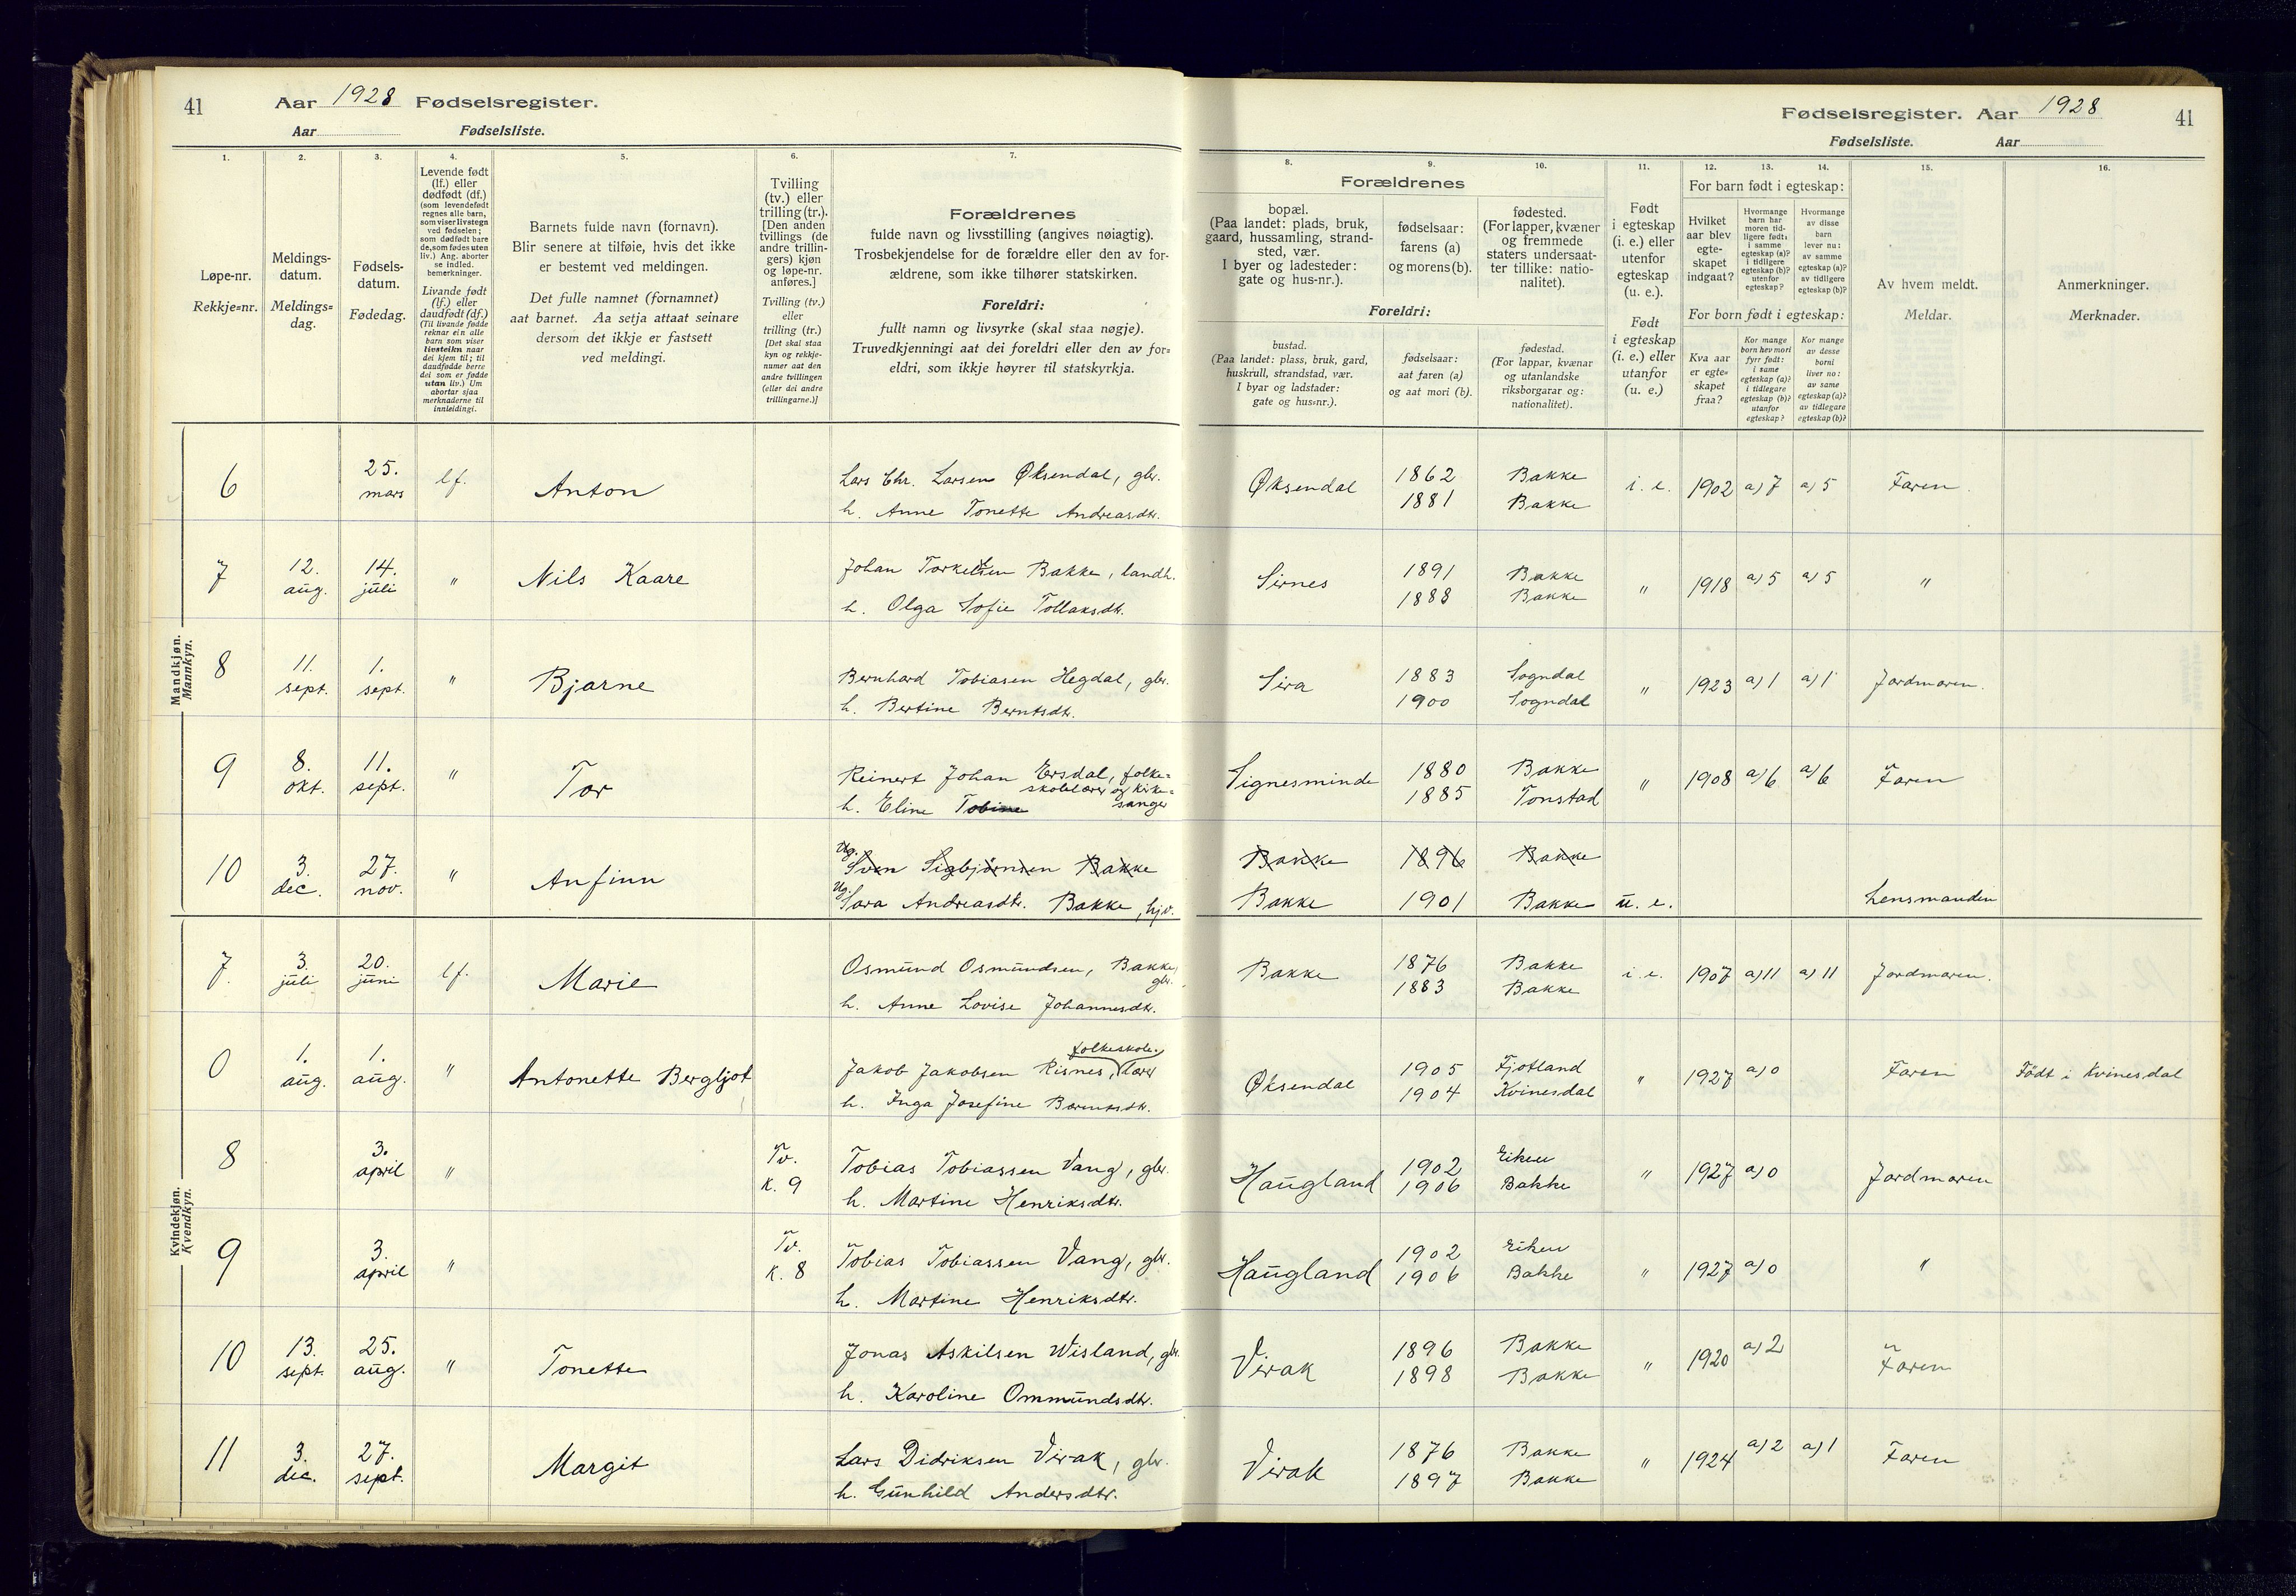 41 Aar 1928 Fødselsregister.
Aar Fødselsliste.
Fødselsregister. Aar 1928 41
Fødselsliste. Aar
1. 2. 3. 4. 5. 6. 7.
Løpe-nr.
Rekkje=nr.
Meldings-
datum.
Meldings=
dag.
Fødsels-
datum.
Fødedag.
Levende født
(lf.) eller
dødfødt (df.)
(som levendefødt
regnes alle barn,
som viser livstegn
ved fødselen;
som dødfødt bare
de, som fødes uten
liv.) Ang. aborter
se indled.
bemerkninger.
Livande født
(lf.) eller
daudfødt (df.)
(Til livande fødde
reknar ein alle
barn som viser
livsteikn naar
dei kjem til; til
daudfødde berre
dei som er fødde
utan liv.) Um
abortar sjaa
merknaderne til
innleidingi.
Barnets fulde navn (fornavn).
Blir senere at tilføie, hvis det ikke
er bestemt ved meldingen.
Det fulle namnet (fornamnet)
aat barnet. Aa setja attaat seinare
dersom det ikkje er fastsett
ved meldingi.
Tvilling
(tv.) eller
trilling (tr.).
[Den anden
tvillings (de
andre trillin-
gers) kjøn
og løpe-nr.
anføres.]
Tvilling (tv.)
eller
trilling (tr.)
[Det skal staa
kyn og rekkje-
numer aat den
andre tvillingen
(eller dei andre
trillingarne.)]
Forældrenes
fulde navn og livsstilling (angives nøiagtig).
Trosbekjendelse for de forældre eller den av for-
ældrene, som ikke tilhører statskirken.
Foreldri:
fullt namn og livsyrke (skal staa nøgje).
Truvedkjenningi aat dei foreldri eller den av for=
eldri, som ikkje høyrer til statskyrkja.
8. 9. 10. 11. 12. 13. 14. 15. 16.
Forældrenes
bopæl.
(Paa landet: plads, bruk,
gaard, hussamling, strand-
sted, vær.
I byer og ladesteder:
gate og hus-nr.).
fødselsaar:
farens (a)
og morens (b).
fødested.
(For lapper, kvæner
og fremmede
staters undersaat-
ter tillike: natio-
nalitet).
Foreldri:
bustad.
(Paa landet: plass, bruk, gard,
huskrull, strandstad, vær.
I byar og ladstader:
gate og hus=nr.).
fødselsaar:
aat faren (a)
og aat mori (b).
fødestad.
(For lappar, kvænar
og utanlandske
riksborgarar og:
nationalitet).
Født
i egteskap
(i. e.) eller
utenfor
egteskap
(u. e.).
Født
i egteskap
(i. e.) eller
utanfor
(u. e.)
For barn født i egteskap:
Hvilket
aar blev
egte-
skapet
indgaat?
Hvormange
barn har
moren tid-
ligere født:
i samme
egteskap (a)?
i tidligere
egteskap (b)?
utenfor
egteskap?
Hvormange
av disse
barn
lever nu:
av samme
egteskap (a)?
av tidligere
egteskap (b)?
For born født i egteskap:
Kva aar
er egte=
skapet
fraa?
Kor mange
born hev mori
fyrr født:
i same
egteskap (a)?
i tidlegare
egteskap (b)?
utanfor
egteskap?
Kor mange
av desse
borni
liver no:
av same
egteskap (a)?
av tidlegare
egteskap (b)?
Av hvem meldt.
Meldar.
Anmerkninger.
Merknader.
Mandkjøn.
Mannkyn.
6 25. mars lf. Anton Lars Chr. Larsen Øksendal, gbr. Øksendal 1862 Bakke i. e. 1902 a) 7 a) 5 Faren
h. Anne Tonette Andreasdtr. 1881 Bakke
7 12. aug. 14. juli " Nils Kaare Johan Torkelsen Bakke, landh. Sirnes 1891 Bakke " 1918 a) 5 a) 5 "
h. Olga Sofie Tollaksdtr. 1888 Bakke
8 11. sept. 1. sept. " Bjarne Bernhard Tobiasen Hegdal, gbr. Sira 1883 Sogndal " 1923 a) 1 a) 1 Jordmoren.
h. Bertine Berntsdtr. 1900 Sogndal
9 8. okt. 11. sept. " Tor Reinert Johan Ersdal, folke= skolelærer og kirke= sanger Signesminde 1880 Bakke " 1908 a) 6 a) 6 Faren
h. Eline Tobine 1885 Tonstad
10 3. dec. 27. nov. " Anfinn Ug. Sven Sigbjørnsen Bakke Bakke 1896 Bakke
Ug. Sara Andreasdtr. Bakke, hjv. Bakke 1901 Bakke u. e. Lensmanden
Kvindekjøn.
Kvendkyn.
7. 3. juli 20. juni lf. Marie Osmund Osmundsen, Bakke, gbr. Bakke 1876 Bakke i. e. 1907 a) 11 a) 11 Jordmoren.
h. Anne Lovise Johannesdtr. 1883 Bakke
0 1. aug. 1. aug. " Antonette Bergljot Jakob Jakobsen Risnes, folkeskole. lærer Øksendal 1905 Fjotland " 1927 a) 0 Faren Født i Kvinesdal
h. Inga Josefine Berntsdtr. 1904 Kvinesdal
8 3. april " Tv. K. 9 Tobias Tobiassen Vang, gbr. Haugland 1902 Eiken " 1927 a) 0 Jordmoren
h. Martine Henriksdtr. 1906 Bakke
9 3. april " Tv. K. 8 Tobias Tobiassen Vang, gbr. Haugland 1902 Eiken " 1927 a) 0 "
h. Martine Henriksdtr. 1906 Bakke
10 13. sept. 25. aug. " Tonette Jonas Askilsen Wisland, gbr. Virak 1896 Bakke " 1920 a) 2 Faren
h. Karoline Ommundsdtr. 1898 Bakke
11 3. dec. 27. sept. Margit Lars Didriksen Virak, gbr. Virak 1876 Bakke " 1924 a) 2 a) 1 Faren
h. Gunhild Andersdtr. 1897 Bakke